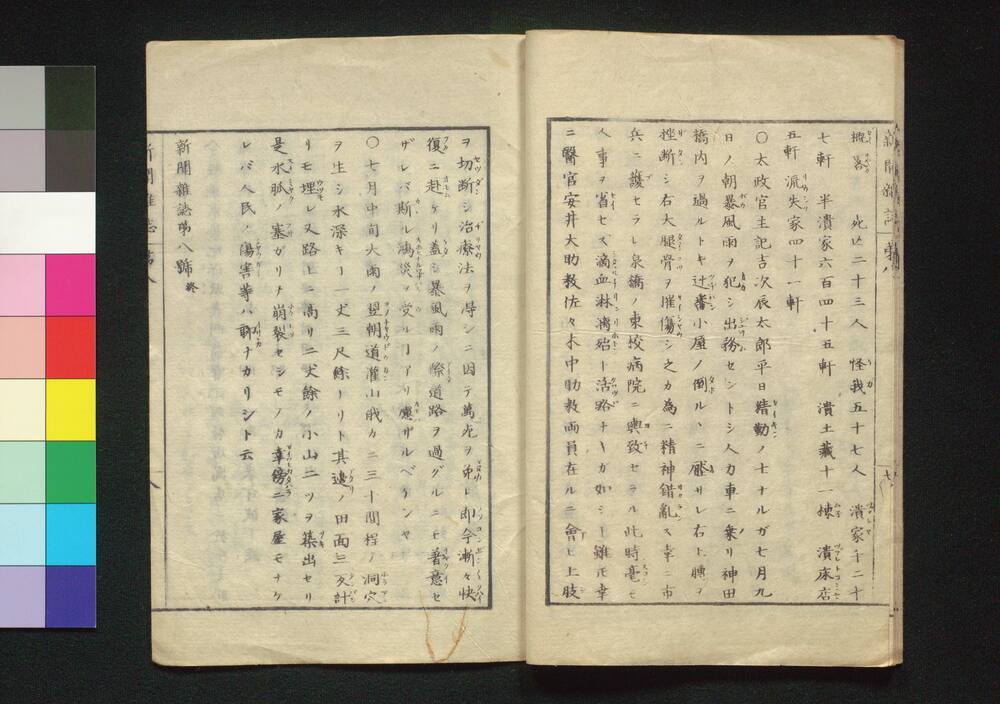 新聞雑誌 第八
概畧 死亡二十三人 怪我五十七人 潰家千二十
七軒 半潰家六百四十五軒 潰土藏十一棟 潰床店
五軒 流失家四十一軒
〇太政官主記吉次辰太郎平日精勤ノ士ナルガ七月九
日ノ朝暴風雨ヲ犯シ出務セントシ人力車ニ乗リ神田
橋内ヲ過ルトキ辻番小屋ノ倒ルヽニ壓サレ右上膊ヲ
挫断シ右大腿骨ヲ摧傷シ之カ為ニ精神錯亂ス幸ニ市
兵ニ護セラレ泉橋ノ東校病院ニ輿致セラル此時毫モ
人事ヲ省セズ滴血淋漓殆ト活路ナキガ如シト雖モ幸
ニ醫官安井大助教佐々木中助教両員在ルニ會ヒ上肢
ヲ切断シ治療法ヲ得シニ因テ萬死ヲ免レ即今漸々快
復ニ赴ケリ蓋シ暴風雨ノ際道路ヲ過グルニモ著意セ
ザレバ斯ル鴻災ヲ受ル丅アリ慮ザルベケンヤ
〇七月中旬大雨ノ翌朝道灌山俄カニ三十間程ノ洞穴
ヲ生シ水深キ丅一丈三尺餘ナリト其邊ノ田面三反計
リモ埋レ又路上ニ高サ二丈餘ノ小山二ツヲ築出セリ
是水脈ノ塞ガリテ崩裂セシモノカ幸傍ニ家屋モナケ
レバ人民ノ傷害等ハ聊ナカリシト云
新聞雜誌第八號 終
新聞雑誌 第八
八